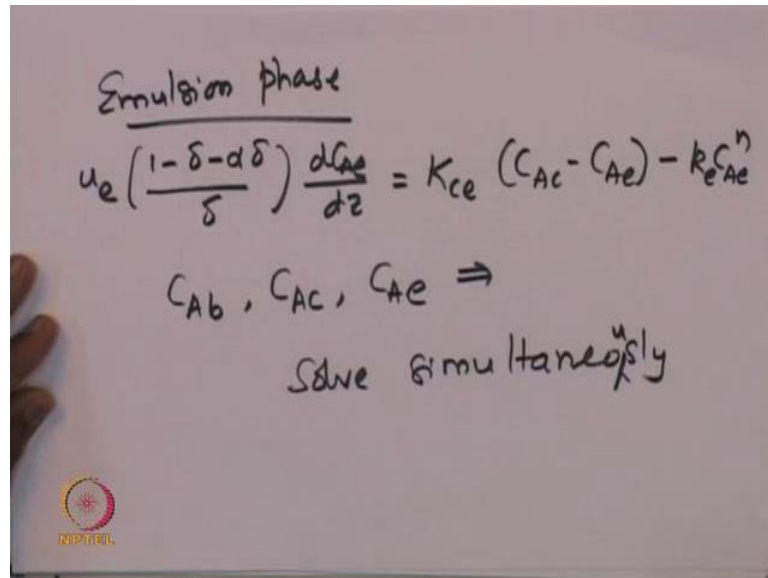 Emulsion phase
u_e ( (1 - δ - αδ) / δ ) dC_Ae / dz = K_ce (C_Ac - C_Ae) - k_e C_Ae^n
C_Ab , C_Ac , C_Ae ⇒
Solve simultaneously
NPTEL